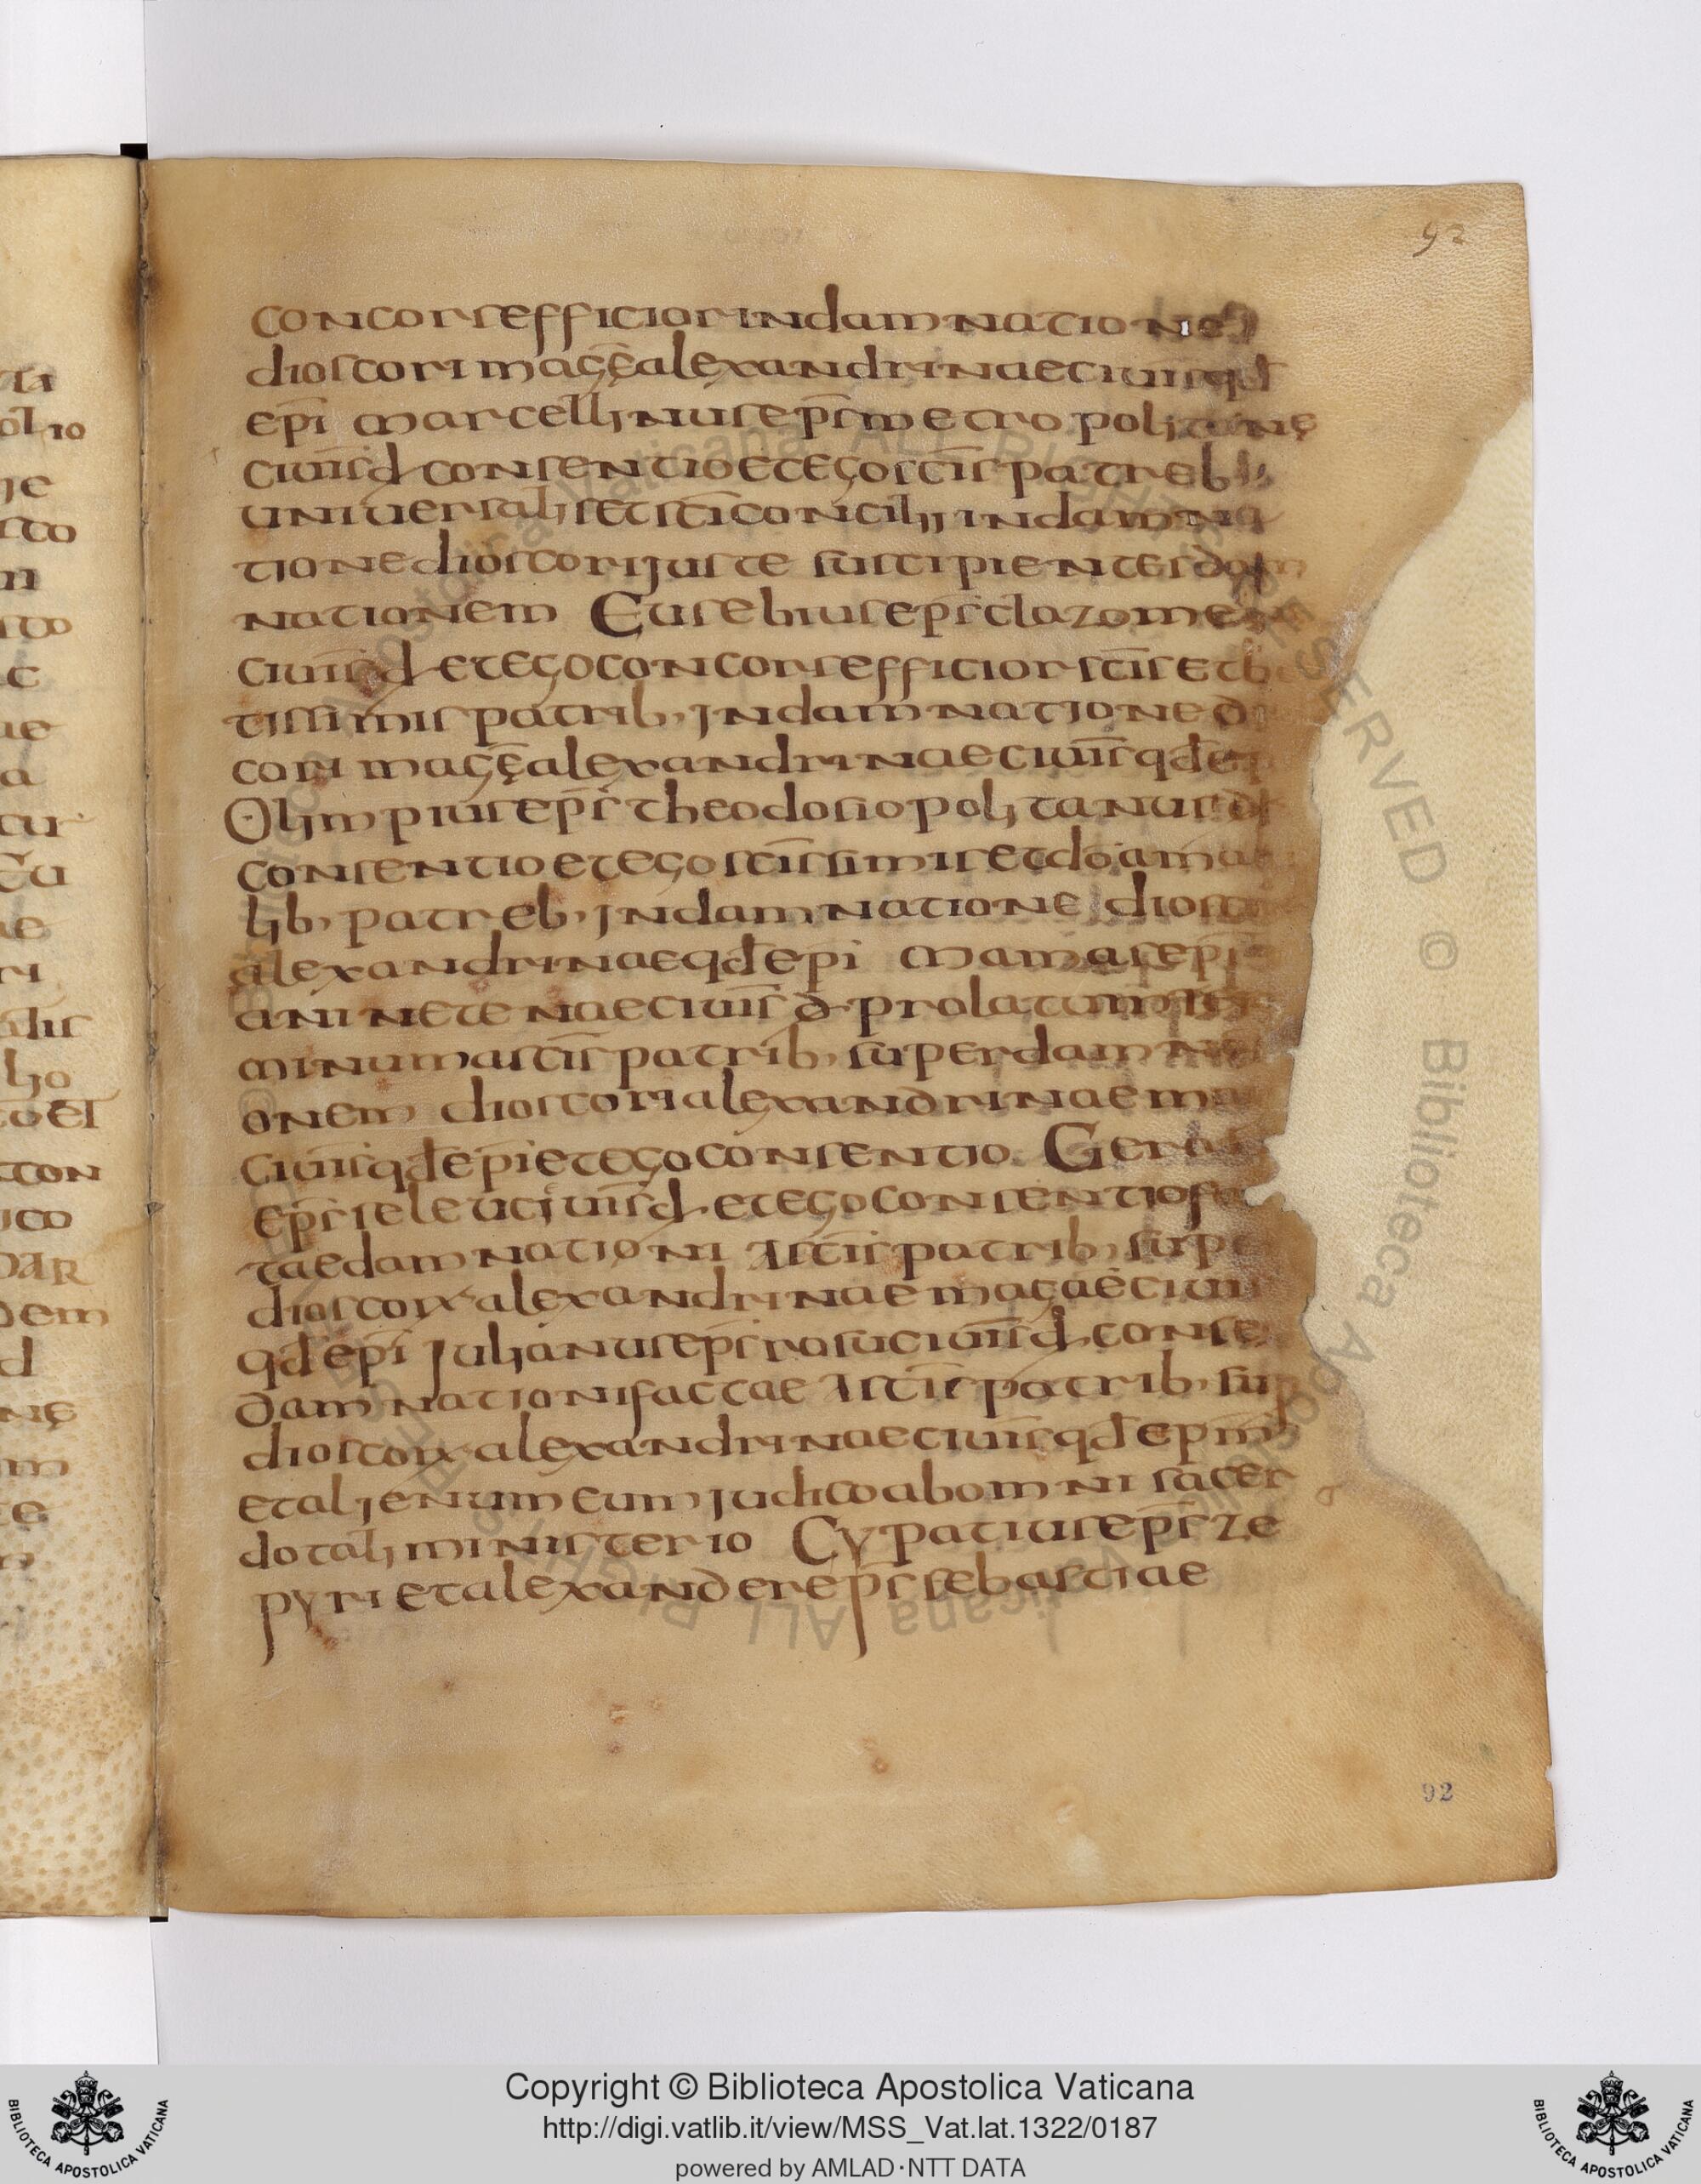 92
concors efficior in damnatione
dioscori magę̄ alexandrinae ciuiṡ qd̄
ep̄i marcellinus ep̄s metropolitanę
ciuīs d̄ consentio et ego sc̄is patreb,
uniuersalis et sc̄i concilii in damna
tione dioscori juste suscipientes dam
nationem Eusebius ep̄s clazomen
ciuīs d̄ et ego concors efficior sc̄is et b
tissimis patrib, in damnatione di
cori magę̄ alexandrinae ciuīs qd̄ ep
Olimpius ep̄s theodosiopolitanus
consentio et ego sc̄issimis et dō ama
lib, patreb, in damnatione diosco
alexandrinae qd̄ ep̄i mamas ep̄s
aninetenae ciuīs d̄ prolatum
minum a sc̄is patrib, super damna
onem dioscori alexandrinae ma
ciuīs qd̄ ep̄i et ego consentio Geron
ep̄s seleuci uīs d̄ et ego consentio fa
tae damnationi A sc̄is patrib, supe
dioscorx alexandrinae magae ciuit
qd̄ ep̄i Julianus ep̄s rosu ciuīs d̄ conse
damnationi factae A sc̄is patrib, sup
dioscorx alexandrinae ciuīs qd̄ ep̄m
et alienum eum judico ab omni sacer
dotali ministerio Cypatius ep̄s ze
pyri et alexander ep̄s sebastiae
92
Copyright © Biblioteca Apostolica Vaticana
http://digi.vatlib.it/view/MSS_Vat.lat.1322/0187
powered by AMLAD·NTT DATA
BIBLIOTECA APOSTOLICA VATICANA
BIBLIOTECA APOSTOLICA VATICANA